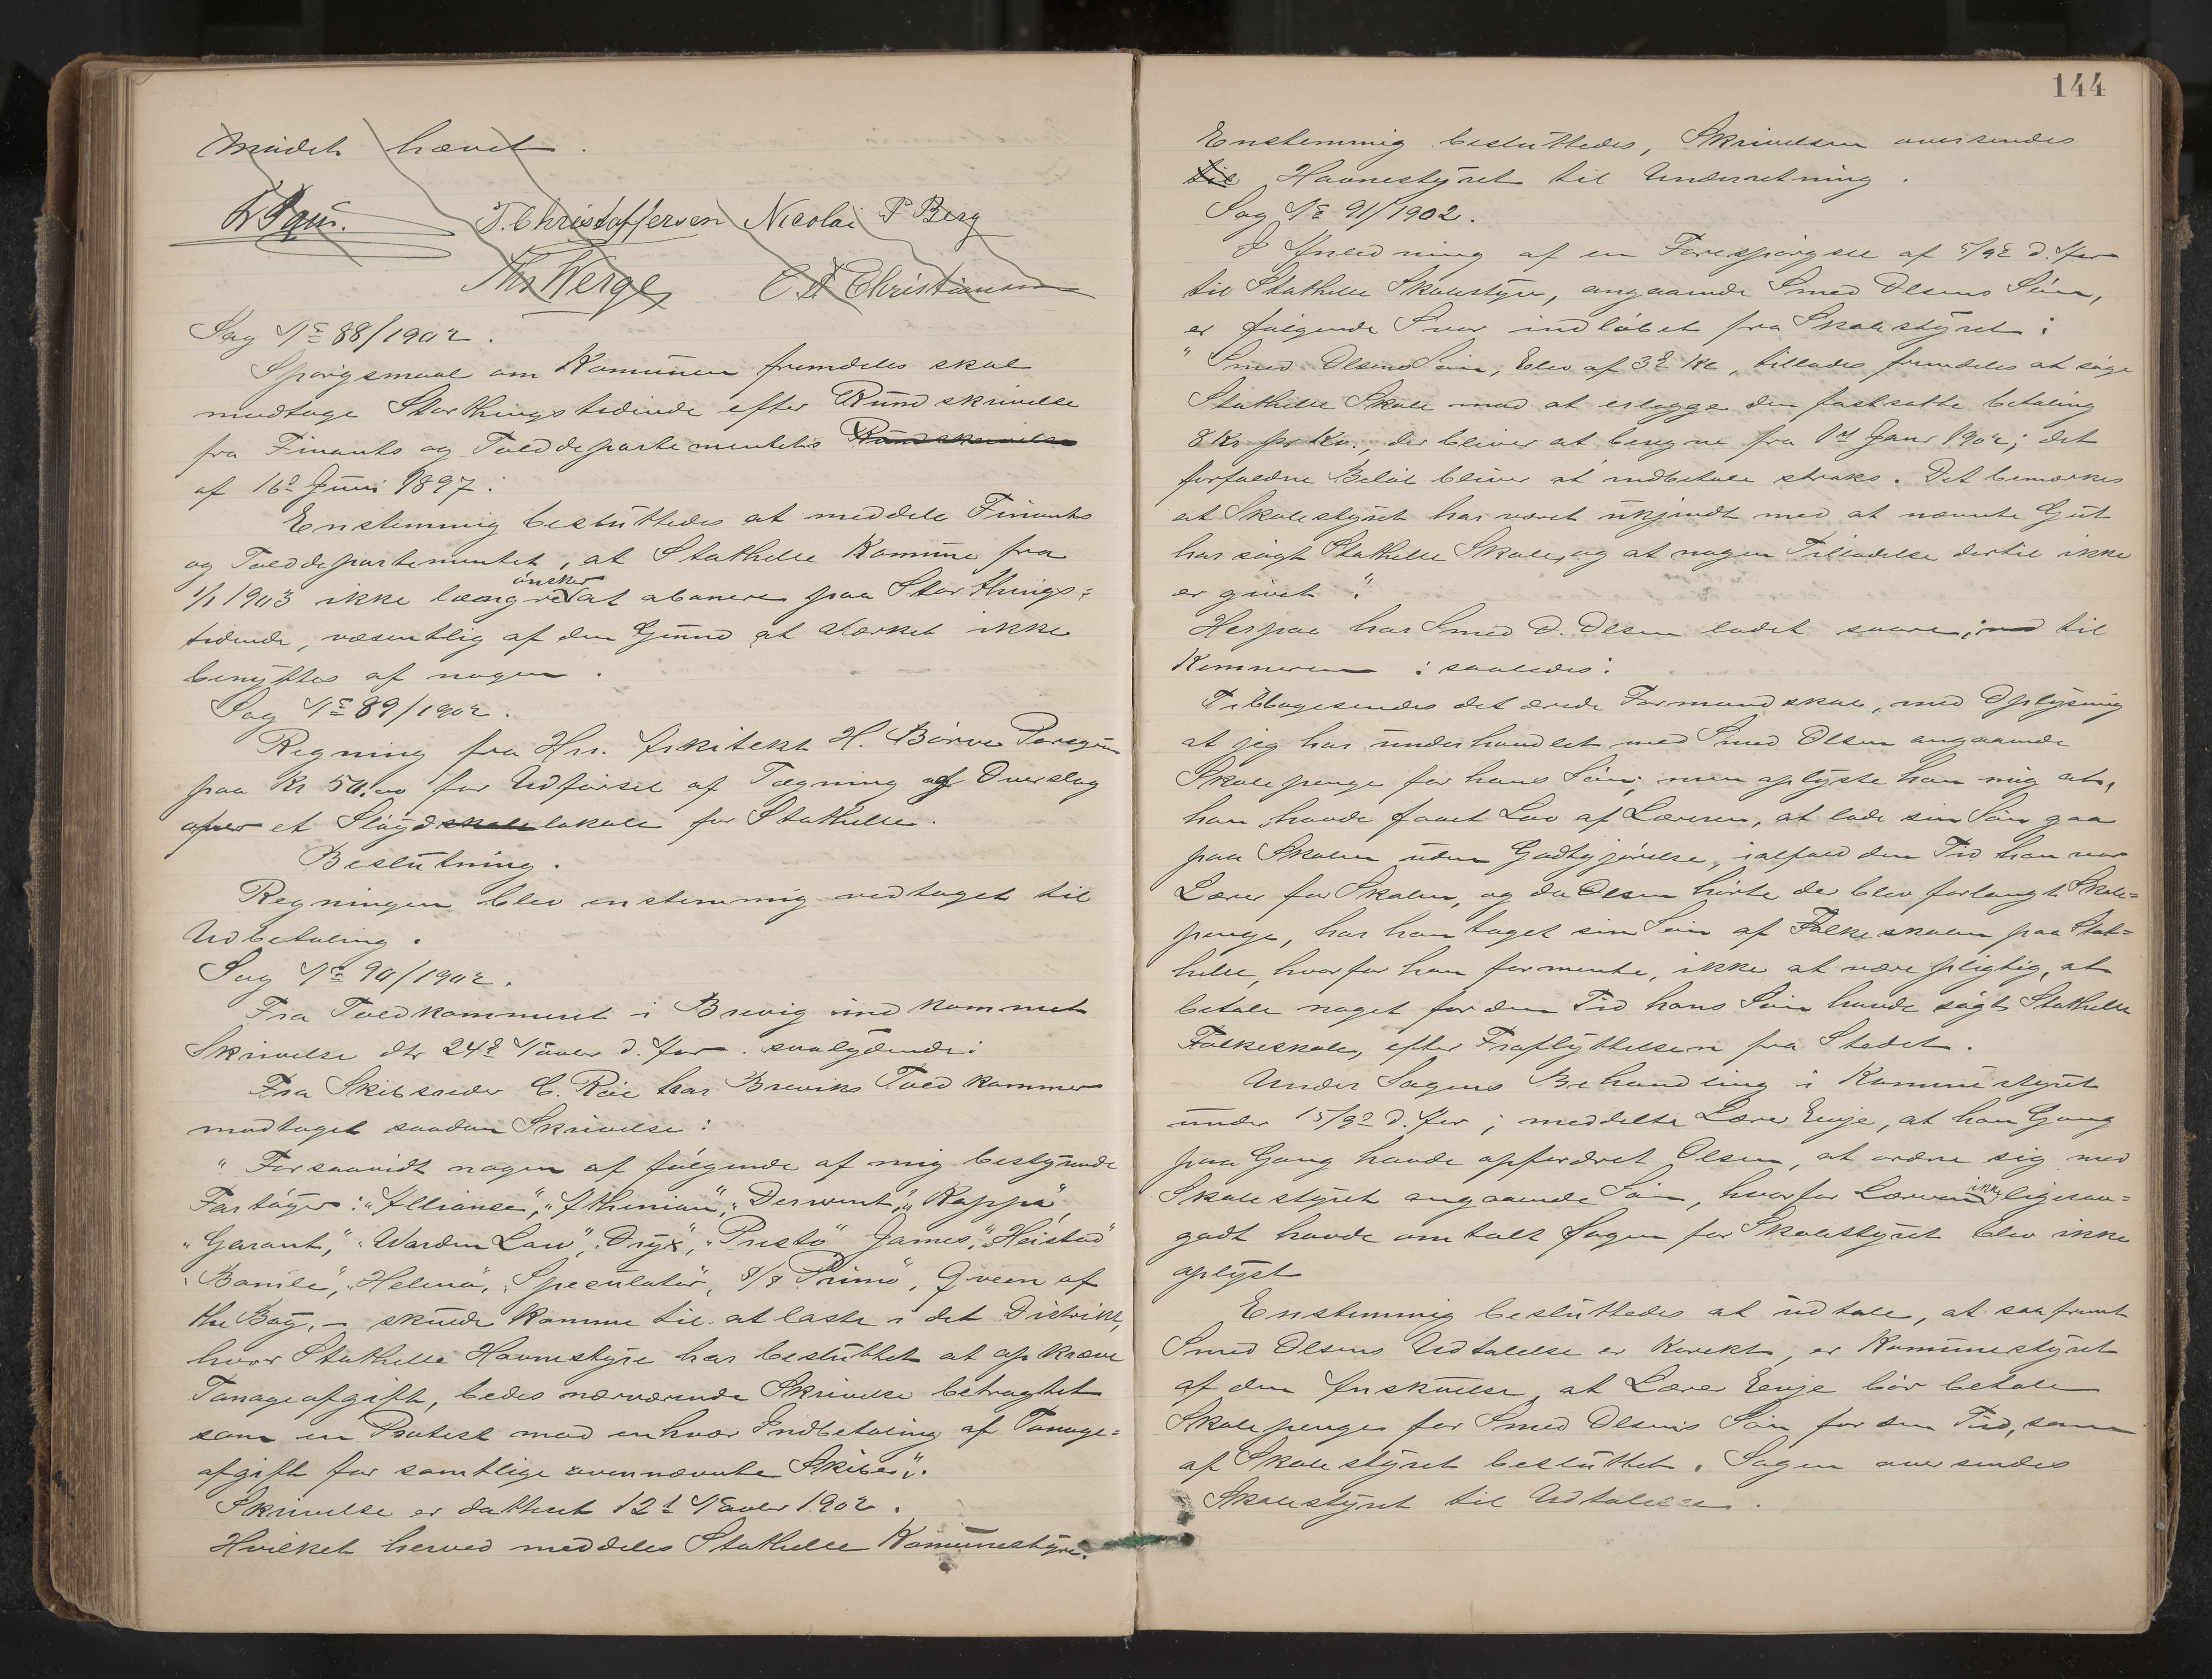 Mödet hævet.
T. Christoffersen Nicolai P Berg
Ths Werge C A Christiansen
Sag No 88/1902.
Spørgsmaal om Komunen fremdeles skal
modtage Storthingstidende efter Rundskrivelse
fra Finants og Tolddepartementets Rundskrivelse
af 16d Juni 1897:
Enstemmig besluttedes at meddele Finants
og Tolddepartementet, at Stathelle Komune fra
1/1 1903 ikke længere ønsker at abonere paa Storthings=
tidende, væsentlig af den Grund at Værket ikke
benyttes af nogen.
Sag No 89/1902.
Regning fra Hrr. Arkitekt H. Börve Porsgrun
paa Kr 50.00 for Udførsel af Tegning og Overslag
over et Sløydskole lokale for Stathelle.
Beslutning.
Regningen blev enstemmig vedtaget til
Udbetaling.
Sag No 90/1902.
Fra Toldkammeret i Brevig indkommet
Skrivelse dtr 24d Novbr d. Aar. saalydende:
Fra Skibsreder C. Röe har Breviks Toldkammer
modtaget saadan Skrivelse:
"Forsaavidt nogen af følgende af mig bestyrende
Fartøyer: "Alliance", "Athenian", "Derwent", "Kappa",
"Garant", "Warden Law", "Dryx", "Presto" James", "Heistad"
"Bamle", "Helena", "Speculator", S/S "Primo", Qveen of
the Bay, – skulde komme til at laste i det Distrikt,
hvor Stathelle Havnestyre har besluttet at opkræve
Tonageafgift, bedes nærværende Skrivelse betragtet
som en Protest mod enhver Indbetaling af Tonage=
afgift for samtlige ovennævnte Skibe".
Skrivelse er datteret 12t Novbr 1902.
Hvilket herved meddeles Stathelle Komunestyre.
144
Enstemmig besluttedes, Skrivelsen oversendes
til Havnestyret til Underretning.
Sag No 91/1902.
I Anledning af en Forespørgsel af 5/9d d. Aar
til Stathelle Skolestyre, angaaende Smed Olsens Søn,
er følgende Svar indløbet fra Skolestyret:
"Smed Olsens Søn, Elev af 3d Kl, tillades fremdeles at søge
Stathelle Skole mod at erlægge den fastsatte betaling
8 Kr pr Kv., der bliver at beregne fra 1st Janr 1902; det
forfaldne Beløb bliver at indbetale straks. Det bemærkes
at Skolestyret har været ukjendt med at nævnte Gut
har søgt Stathelle Skole, og at nogen Tilladelse dertil ikke
er givet".
Herpaa har Smed D. Olsen ladet svare; ned til
Kemneren: saaledes:
Tilbagesendes det ærede Formandskab, med Oplysning
at jeg har underhandlet med Smed Olsen angaaende
Skolepenge for hans Søn; men oplyste han mig at,
han havde faaet Lov af Læreren, at lade sin Søn gaa
paa Skolen uden Godtgjørelse, ialfald den Tid han var
Lærer for Skolen, og da Olsen hørte der blev forlangt Skole=
penge, har han taget sin Søn af Folkeskolen paa Stat=
helle, hvorfor han formente, ikke at være pligtig, at
betale noget for den Tid hans Søn havde søgt Stathelle
Folkeskole, efter Fraflyttelsen fra Stedet.
Under Sagens Behandling i Komunestyret
under 15/9d d. Aar; meddelte Lærer Enje, at han Gang
paa Gang havde opfordret Olsen, at ordne sig med
Skolestyret angaaende Søn, hvorfor Læreren ikke ligesaa=
godt havde omtalt Sagen for Skolestyret blev ikke
oplyst
Enstemmig besluttedes at udtale, at saafremt
Smed Olsens Udtalelse er Korekt, er Komunestyret
af den Anskuelse, at Lærer Enje bør betale
Skolepenge for Smed Olsens Søn for den Tid, som
af Skolestyret besluttet. Sagen oversendes
Skolestyret til Udtalelse.